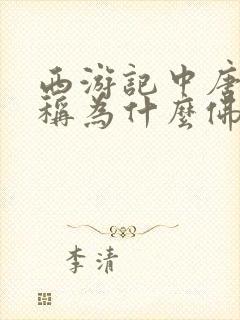 西游記中唐
稱為什麼佛
李清